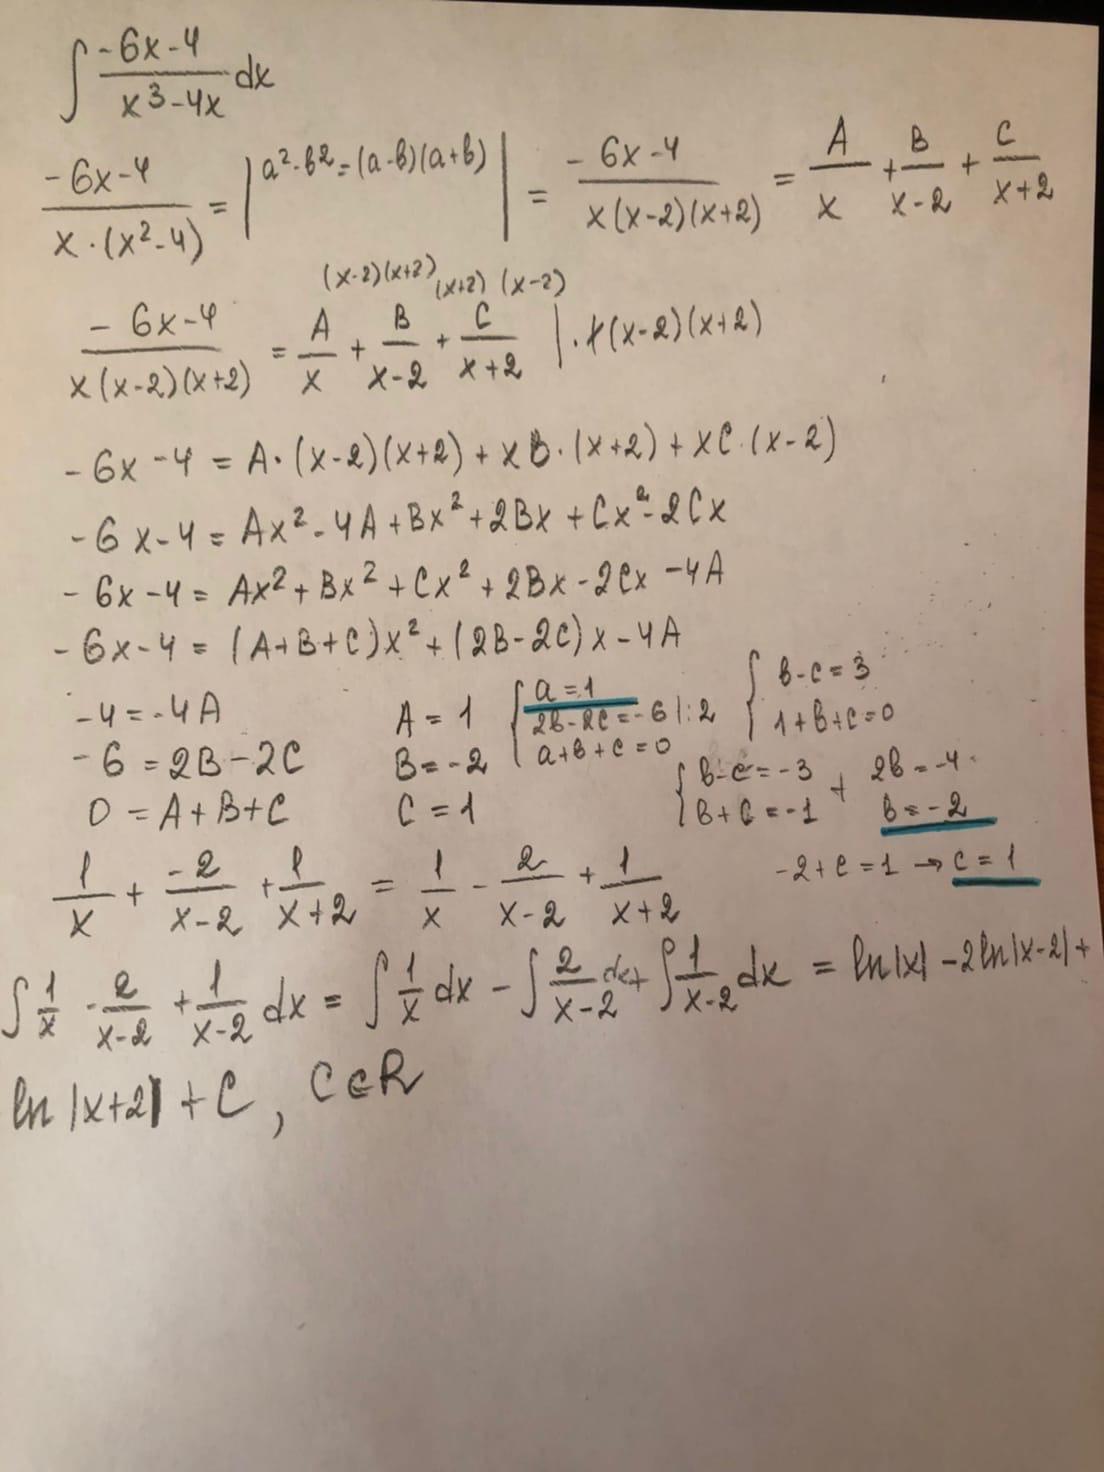 ∫ (-6x-4)/(x³-4x) dx
(-6x-4)/(x·(x²-4)) = | a²-b²=(a-b)(a+b) | = (-6x-4)/(x(x-2)(x+2)) = A/x + B/(x-2) + C/(x+2)
(x-2)(x+2) (x+2) (x-2)
(-6x-4)/(x(x-2)(x+2)) = A/x + B/(x-2) + C/(x+2) |·x(x-2)(x+2)
-6x-4 = A·(x-2)(x+2) + xB·(x+2) + xC·(x-2)
-6x-4 = Ax²-4A+Bx²+2Bx+Cx²-2Cx
-6x-4 = Ax²+Bx²+Cx²+2Bx-2Cx-4A
-6x-4 = (A+B+C)x²+(2B-2C)x-4A
-4=-4A
-6=2B-2C
0=A+B+C
A=1
B=-2
C=1
{ a=1
2b-2c=-6 |:2
a+b+c=0
{ b-c=3
1+b+c=0
{ b-c=-3
b+c=-1
+ 2b=-4
b=-2
-2+c=1 → c=1
1/x + -2/(x-2) + 1/(x+2) = 1/x - 2/(x-2) + 1/(x+2)
∫ 1/x - 2/(x-2) + 1/(x-2) dx = ∫ 1/x dx - ∫ 2/(x-2) dx + ∫ 1/(x-2) dx = ln|x| - 2ln|x-2| +
ln|x+2| + C, C∈R